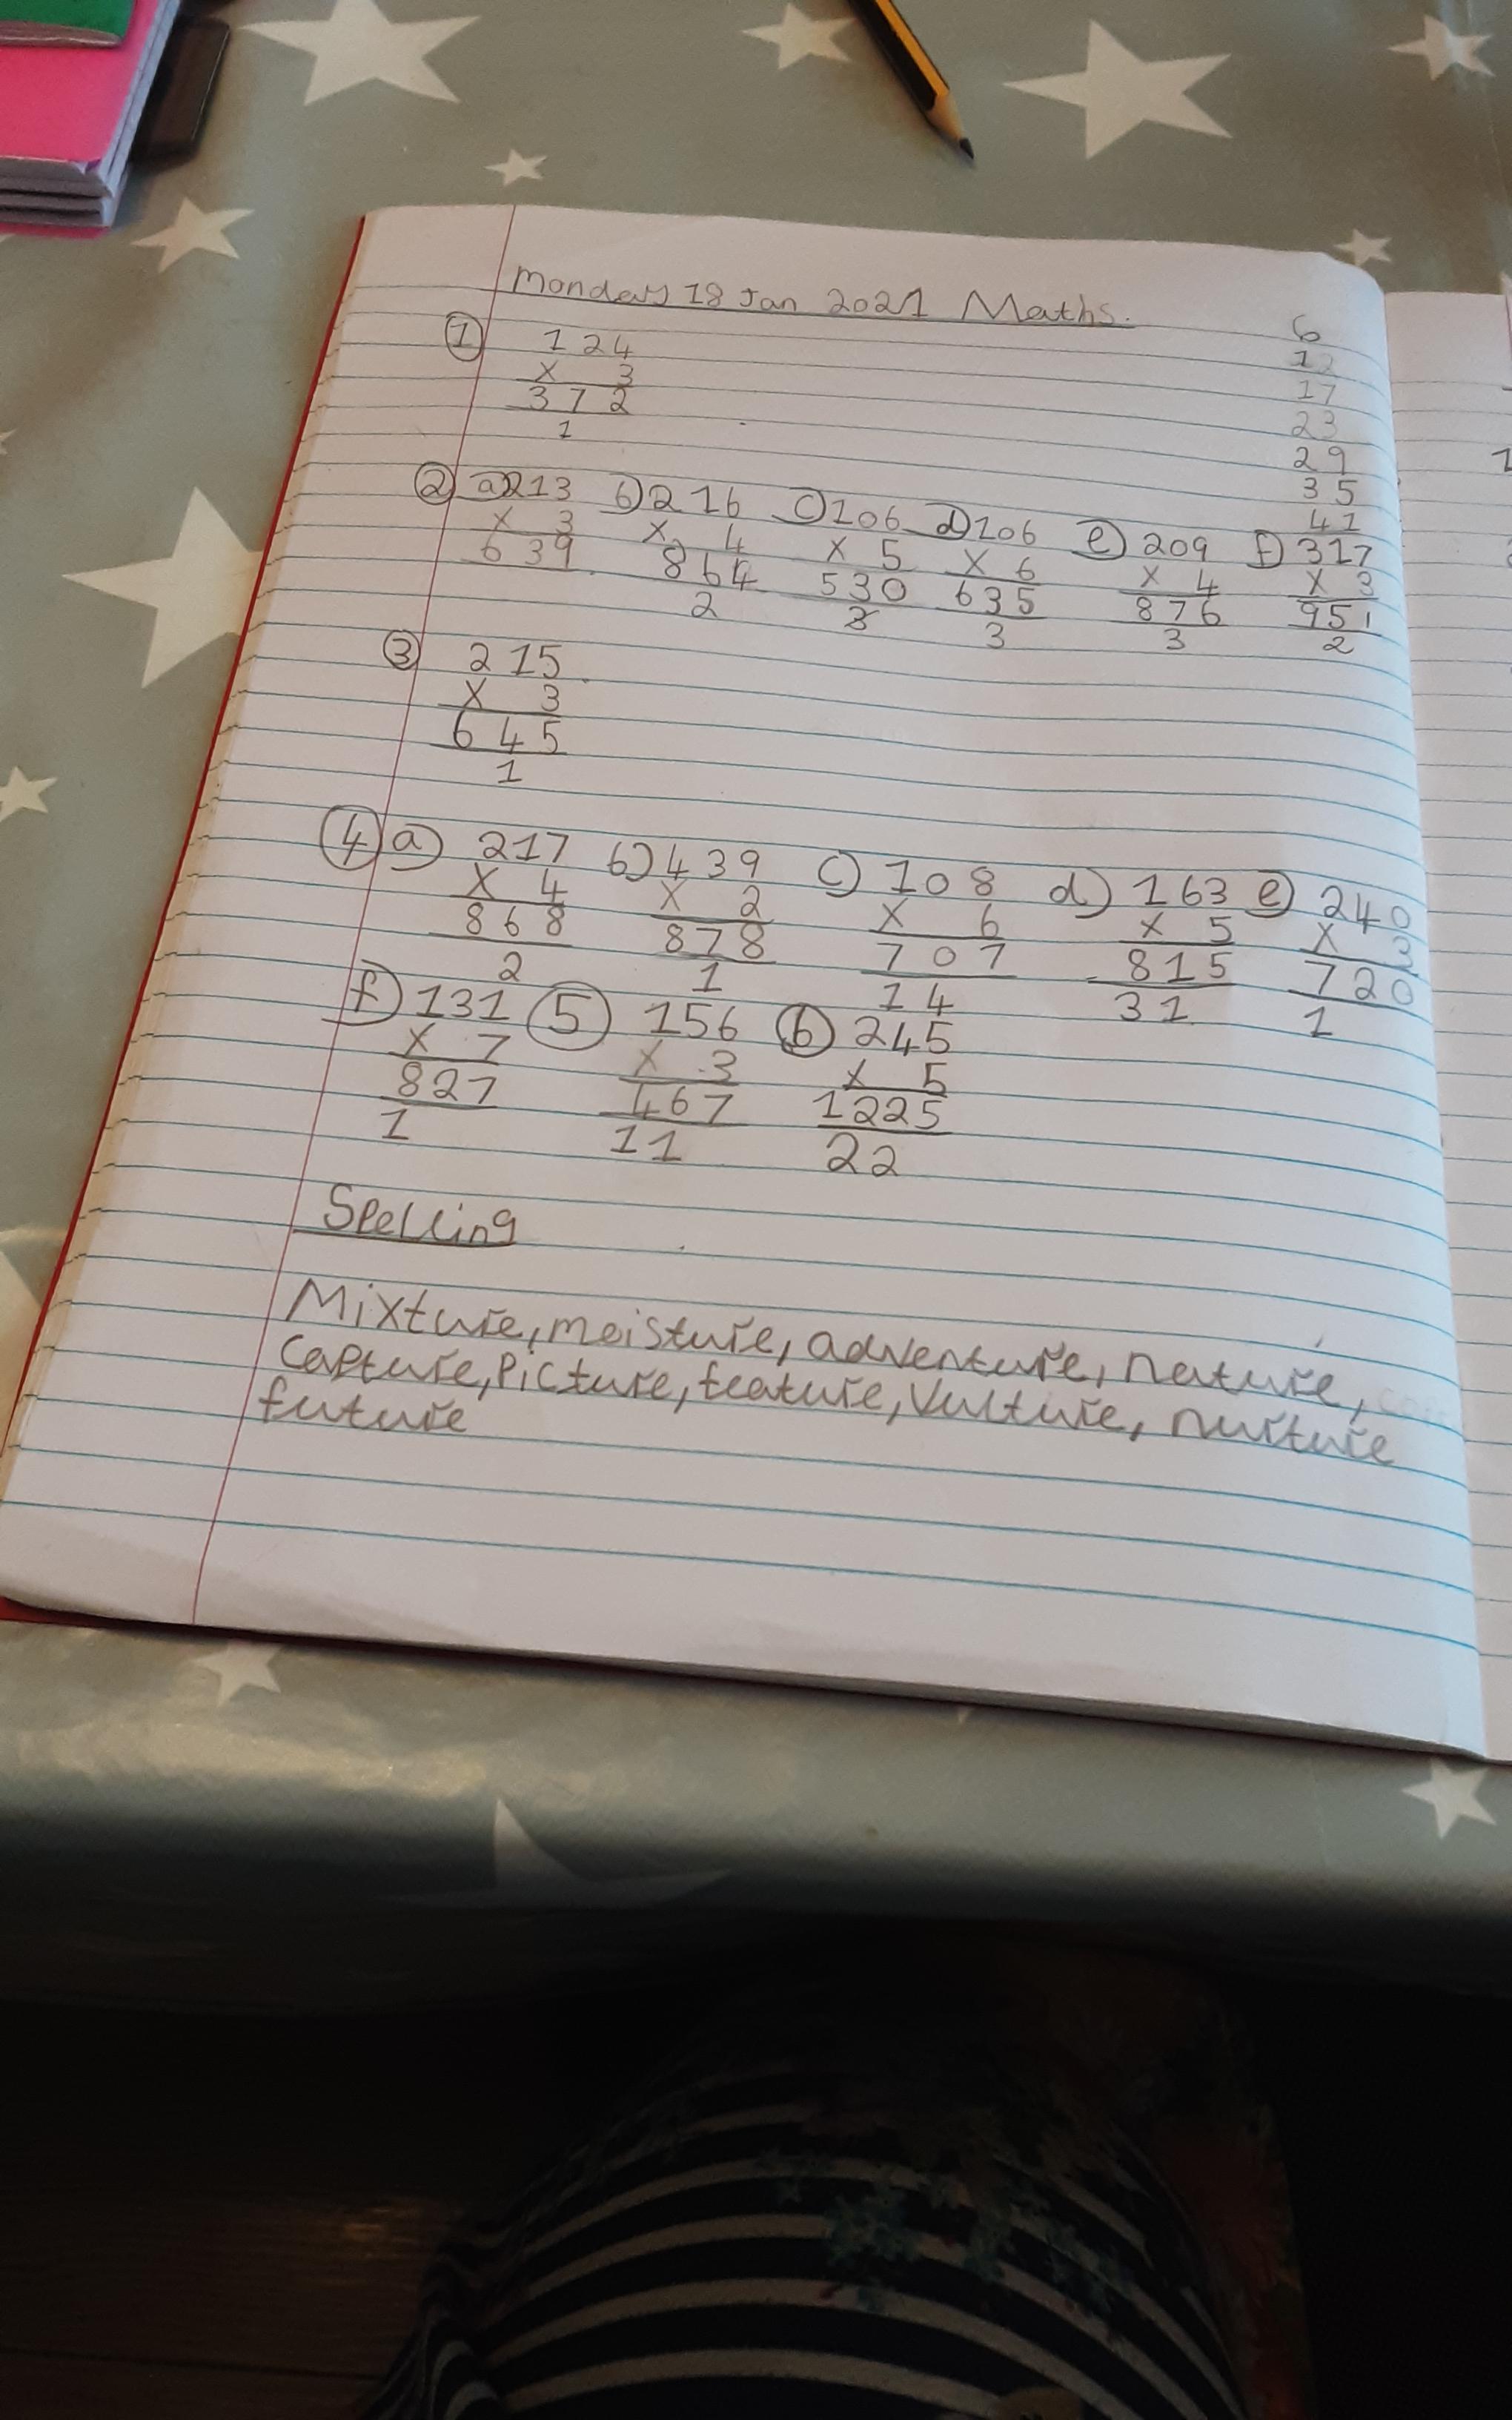 Monday 18 Jan 2021 Maths.
6
12
17
23
29
35
41
① 124
x 3
372
1
② a) 213 b) 216 c) 106 d) 106 e) 209 f) 317
x 3 x 4 x 5 x 6 x 4 x 3
639 864 530 635 876 951
2 3 3 3 2
③ 215
x 3
645
1
④ a) 217 b) 439 c) 108 d) 163 e) 240
x 4 x 2 x 6 x 5 x 3
868 878 707 815 720
2 1 14 31 1
f) 131 ⑤ 156 ⓑ 245
x 7 x 3 x 5
827 467 1225
1 11 22
Spelling
Mixture, moisture, adventure, nature,
Capture, Picture, feature, Vulture, nurture
future